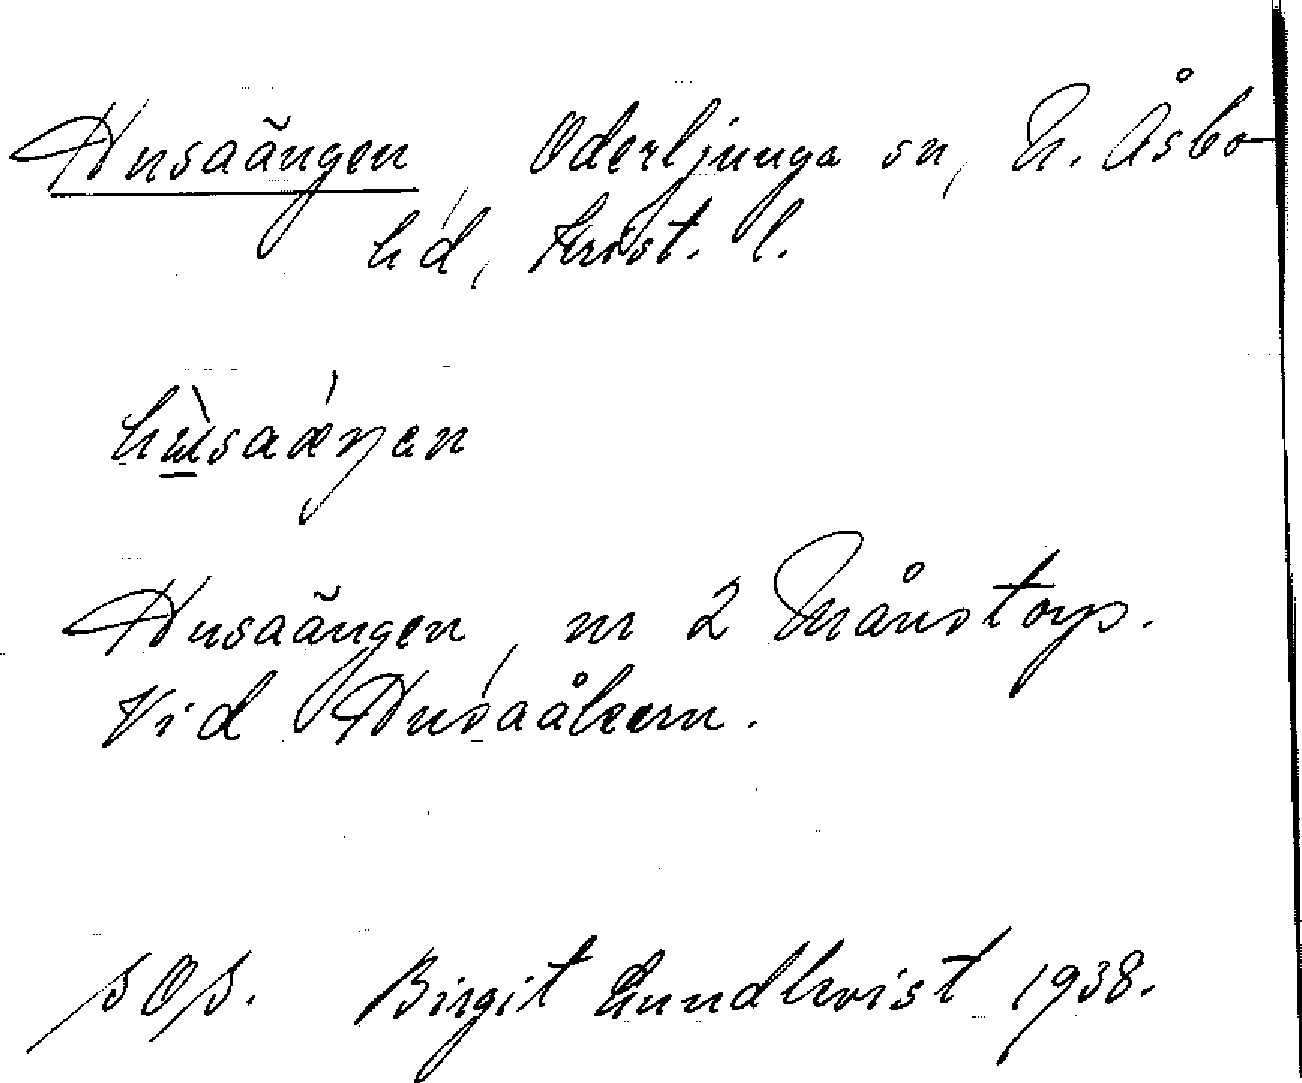 Husaängen, Oderljunga sn, N. Åsbo
hd, Krist. l.
Husaängen, nr 2 Månstorp.
Vid Husaåkern.
Birgit Lundkvist 1938.